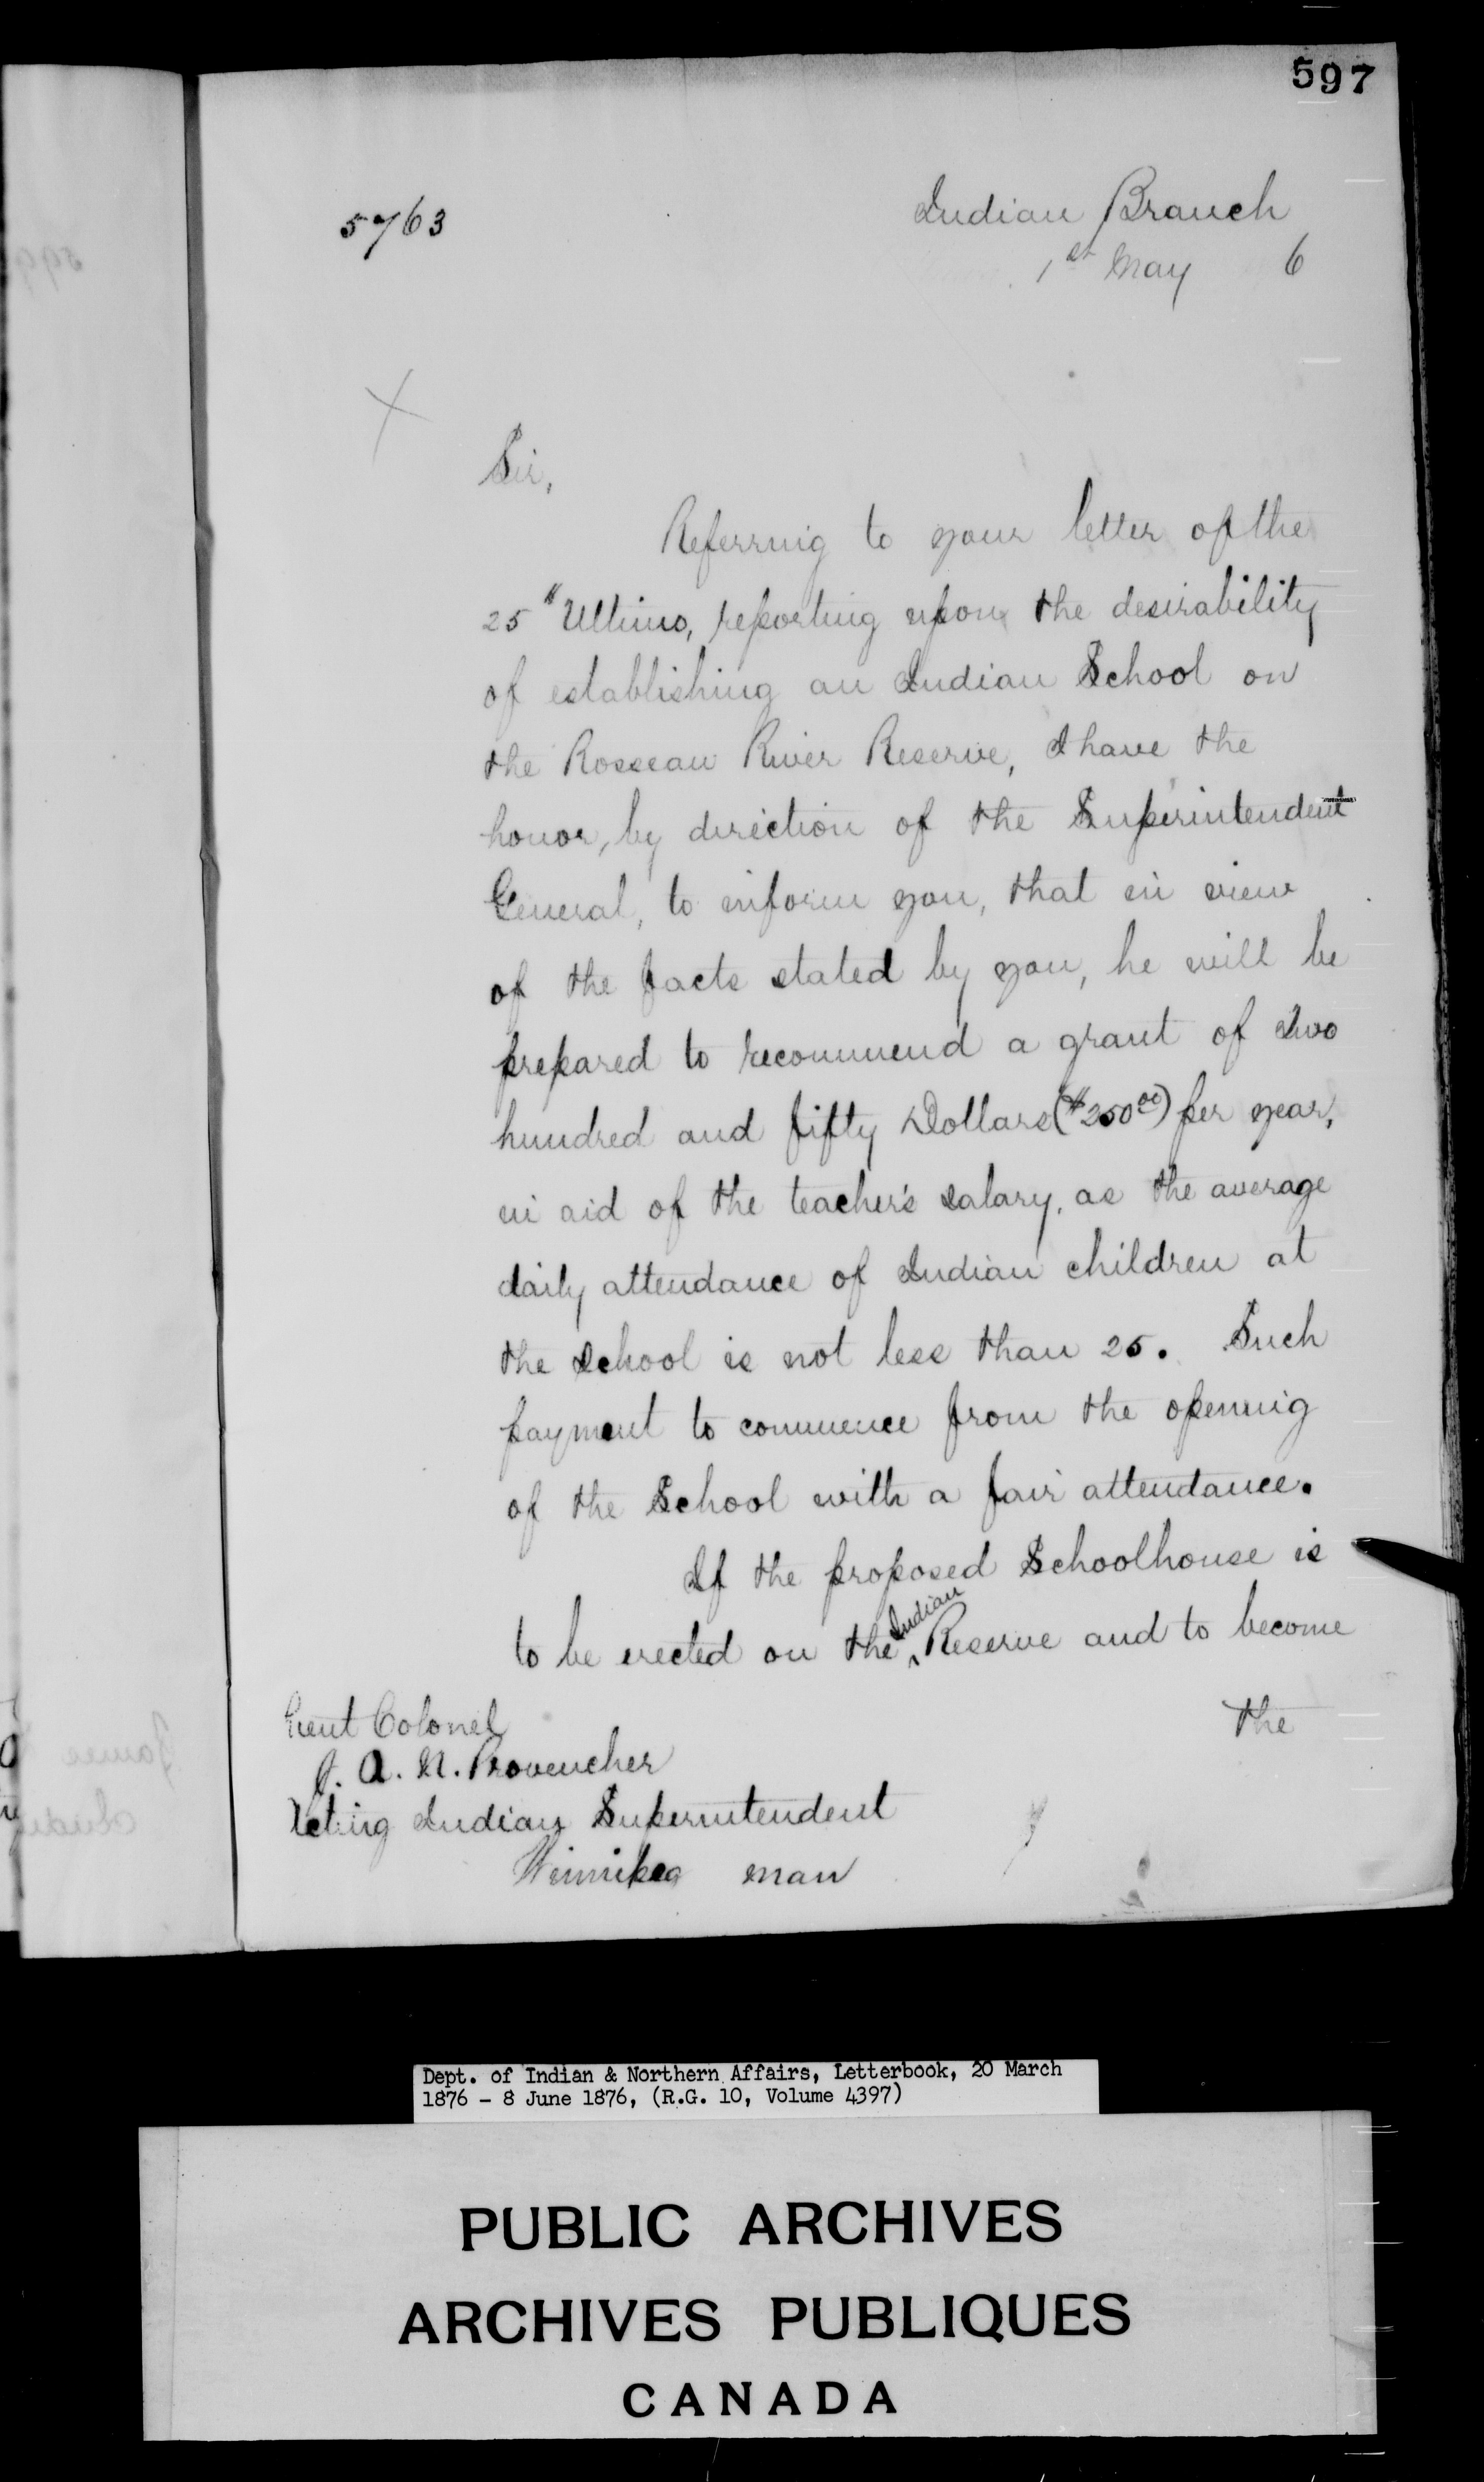 597
5763
Indian Branch
1st May 6
Sir,
Referring to your letter of the
25" Ultimo, reporting upon the desirability
of establishing an Indian School on
the Rosseau River Reserve, I have the
honor, by direction of the Superintendent
General, to inform you, that in view
of the facts stated by you, he will be
prepared to recommend a grant of Two
hundred and fifty Dollars ($250.00) per year,
in aid of the teacher's salary, as the average
daily attendance of Indian children at
the School is not less than 25. Such
payment to commence from the opening
of the School with a fair attendance.
If the proposed Schoolhouse is
to be erected on the Indian Reserve and to become
the
Lieut Colonel
J. A. N. Provencher
Acting Indian Superintendent
Winnipeg Man
Dept. of Indian & Northern Affairs, Letterbook, 20 March
1876 - 8 June 1876, (R.G. 10, Volume 4397)
PUBLIC ARCHIVES
ARCHIVES PUBLIQUES
CANADA